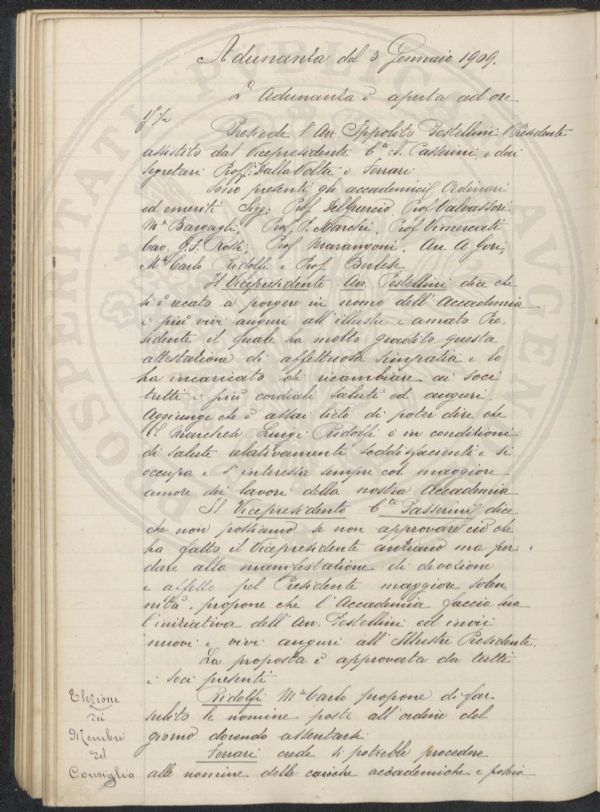 Adunanza del 3 Gennaio 1909.
L'Adunanza è aperta ad ore
Presiede l'Avv. Ippolito Pestellini V. Presidente
assistito dal Vicepresidente C.te N. Passerini e dai
segretari Prof.ri Dalla Volta e Ferrari.
Sono presenti gli accademici Ordinari
ed emeriti Sigg. Prof. Del Guercio, Prof. Valvassori
M.se Bargagli, Prof. P. Marchi, Prof. Vimercati
Cav. G. S. Rossi, Prof. Marangoni, Avv. A. Gori,
M.se Carlo Ridolfi e Prof. Berlese
Il Vicepresidente Avv. Pestellini dice che
si è recato a porgere in nome dell'Accademia
i più vivi auguri all'illustre e amato Pre-
sidente il quale ha molto gradito questa
attestazione di affettuosa simpatia e lo
ha incaricato di ricambiare ai soci
tutti i più cordiali saluti ed auguri.
Aggiunge che è assai lieto di poter dire che
il Marchese Luigi Ridolfi è in condizioni
di salute relativamente soddisfacienti e si
occupa e s'interessa sempre col maggiore
amore dei lavori della nostra Accademia
Il Vicepresidente C.te Passerini dice
che non possiamo se non approvare ciò che
ha fatto il Vicepresidente anziano ma per
dare alla manifestazione di devozione
e affetto pel Presidente maggiore solen-
nità, propone che l'Accademia faccia sua
l'iniziativa dell'Avv. Pestellini ed invii
nuovi e vivi auguri all'Illustre Presidente.
La proposta è approvata da tutti
i soci presenti
Ridolfi M.se Carlo propone di far
subito le nomine poste all'ordine del
giorno dovendo assentarsi.
Ferrari crede si potrebbe procedere
alle nomine delle cariche accademiche e poscia
Elezione
dei
Membri
del
Consiglio
PROSPERITATI PUBLICAE AUGENDAE